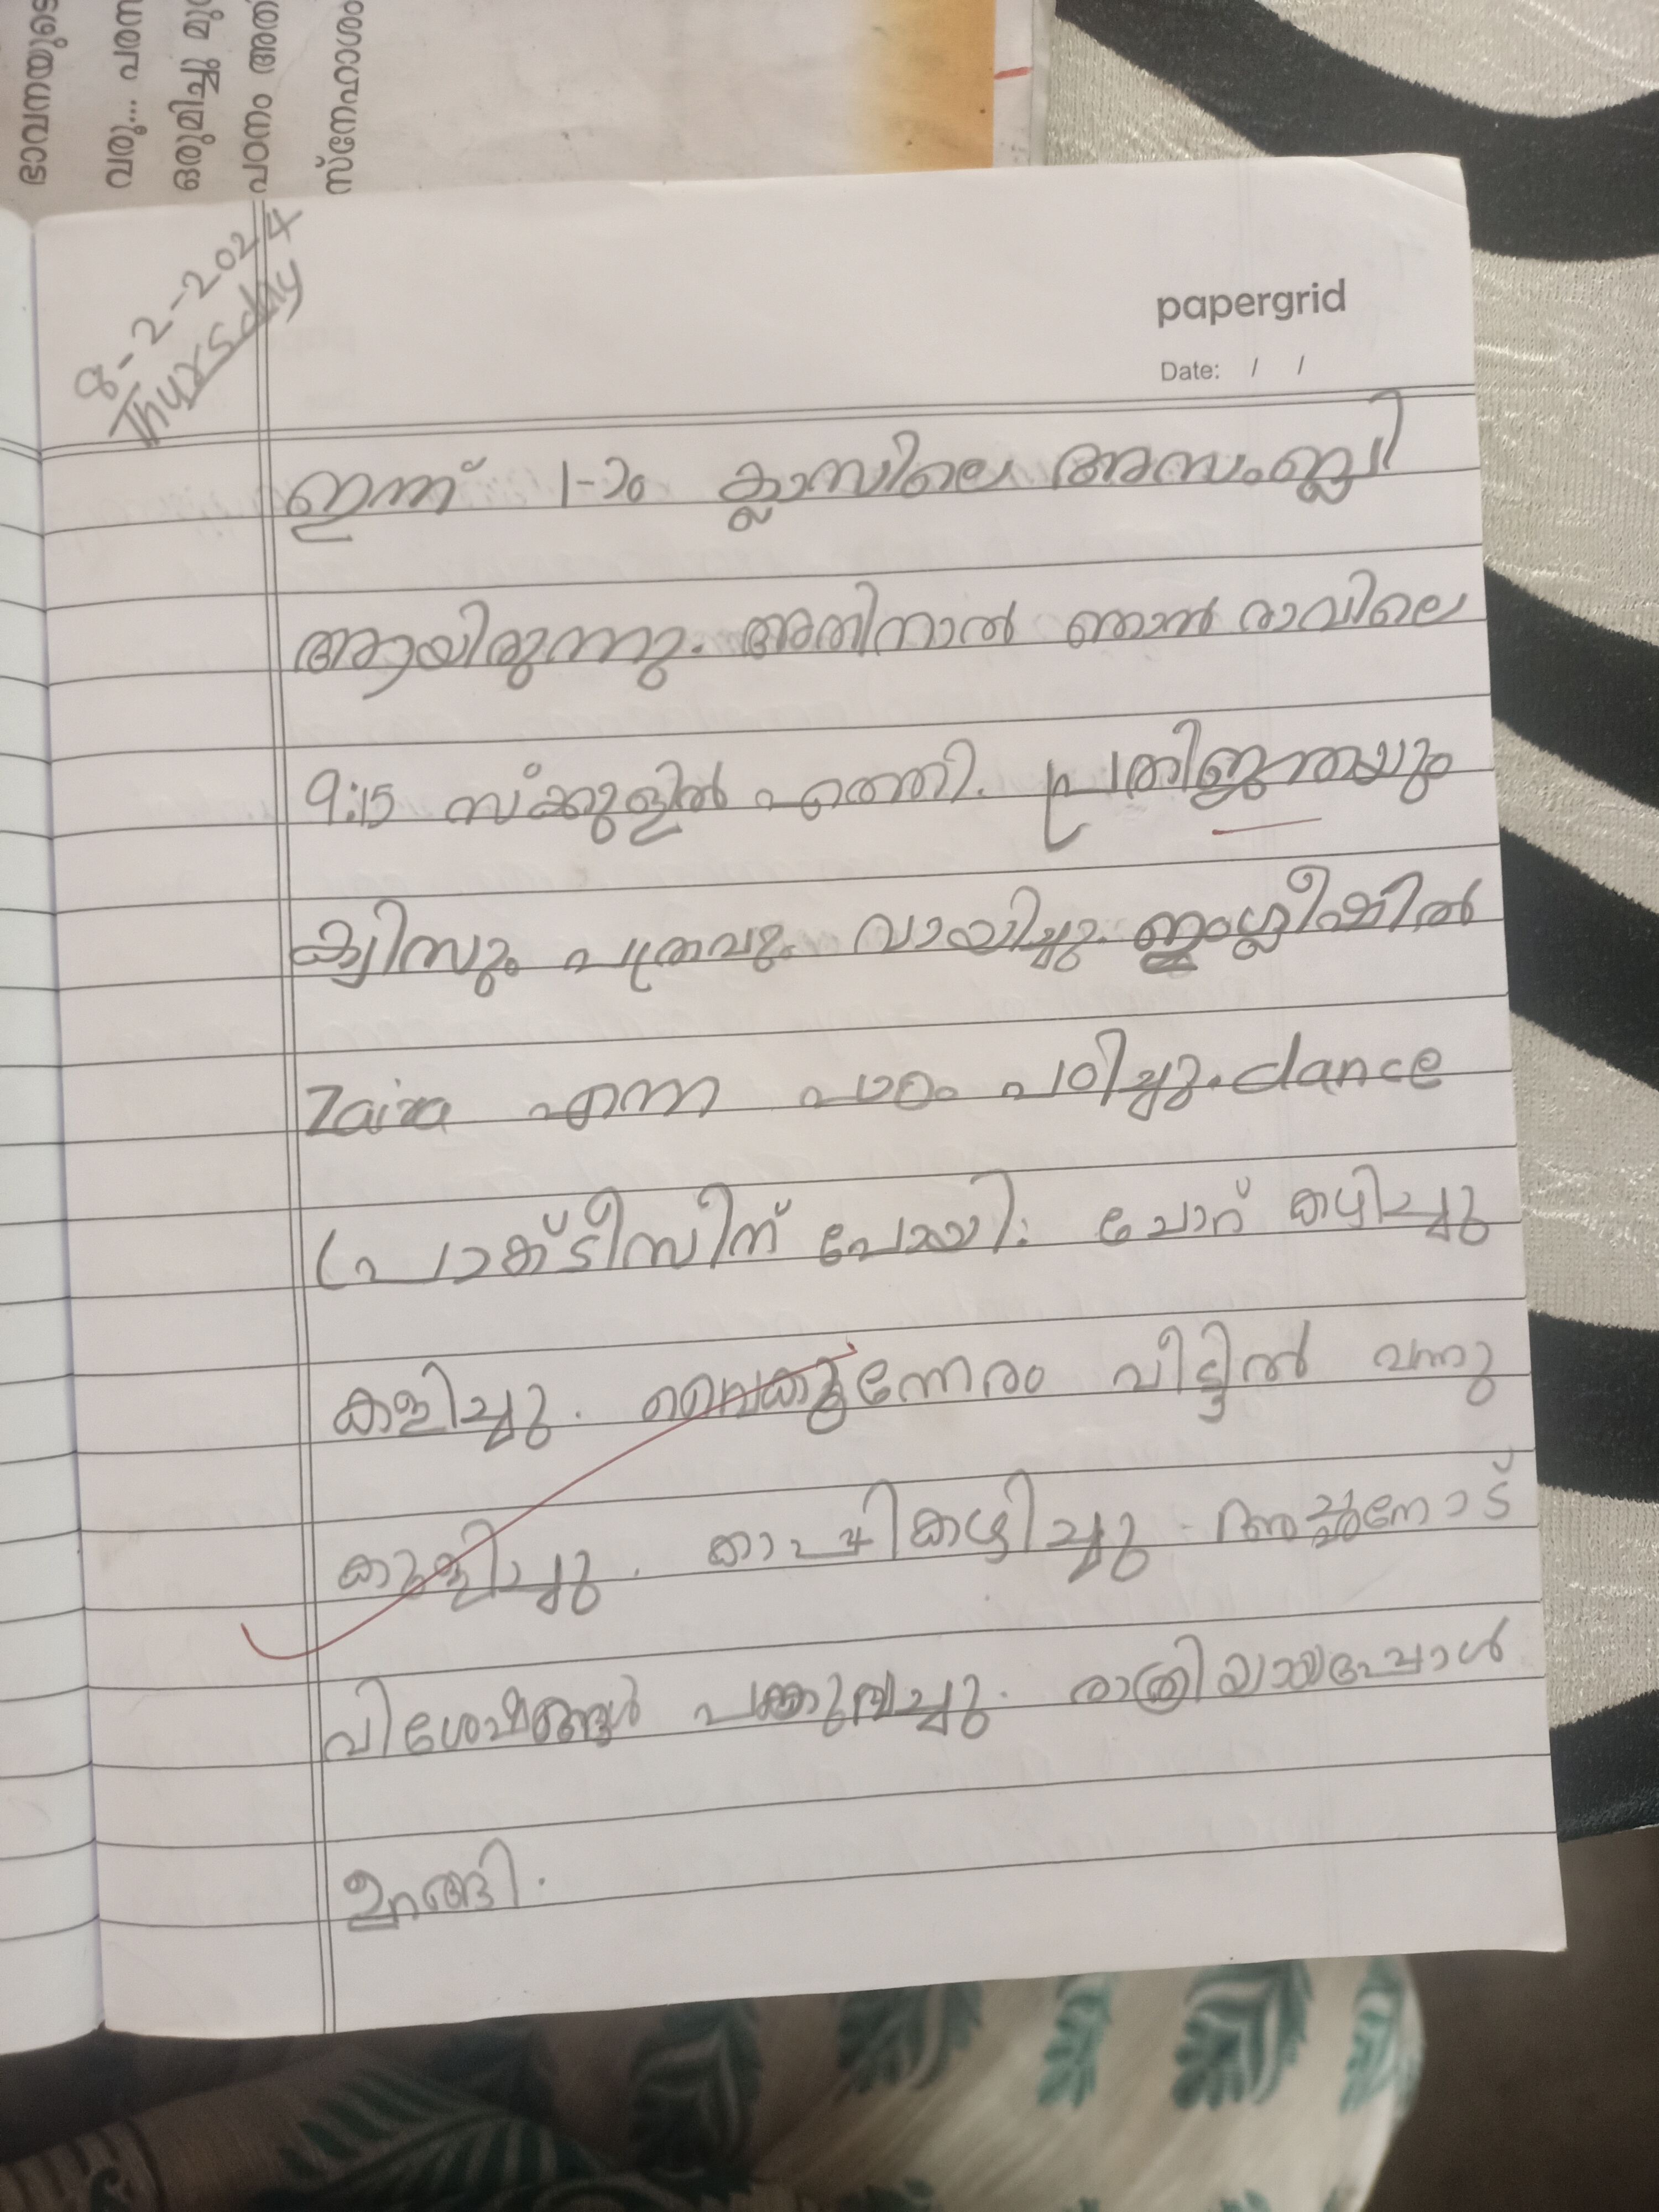 ഭാവനയുടെ
വരൂ... പഠന
ഒരുമിച്ച് മു
പഠനം അതി
സ്നേഹാശം
8-2-2024
Thursday
papergrid
Date: / /
ഇന്ന് 1-ാം ക്ലാസിലെ അസംബ്ലി
ആയിരുന്നു. അതിനാൽ ഞാൻ രാവിലെ
9:15 സ്ക്കൂളിൽ എത്തി. പ്രതിജ്ഞയും
ക്വിസും പത്രവും വായിച്ചു. ഇംഗ്ലീഷിൽ
Zaira എന്ന പാഠം പഠിച്ചു. dance
പ്രാക്ടീസിന് പോയി. ചോറ് കഴിച്ചു
കളിച്ചു. വൈകുന്നേരം വീട്ടിൽ വന്നു
കുളിച്ചു. കാപ്പികഴിച്ചു. അച്ഛനോട്
വിശേഷങ്ങൾ പങ്കുവച്ചു. രാത്രിയായപ്പോൾ
ഉറങ്ങി.